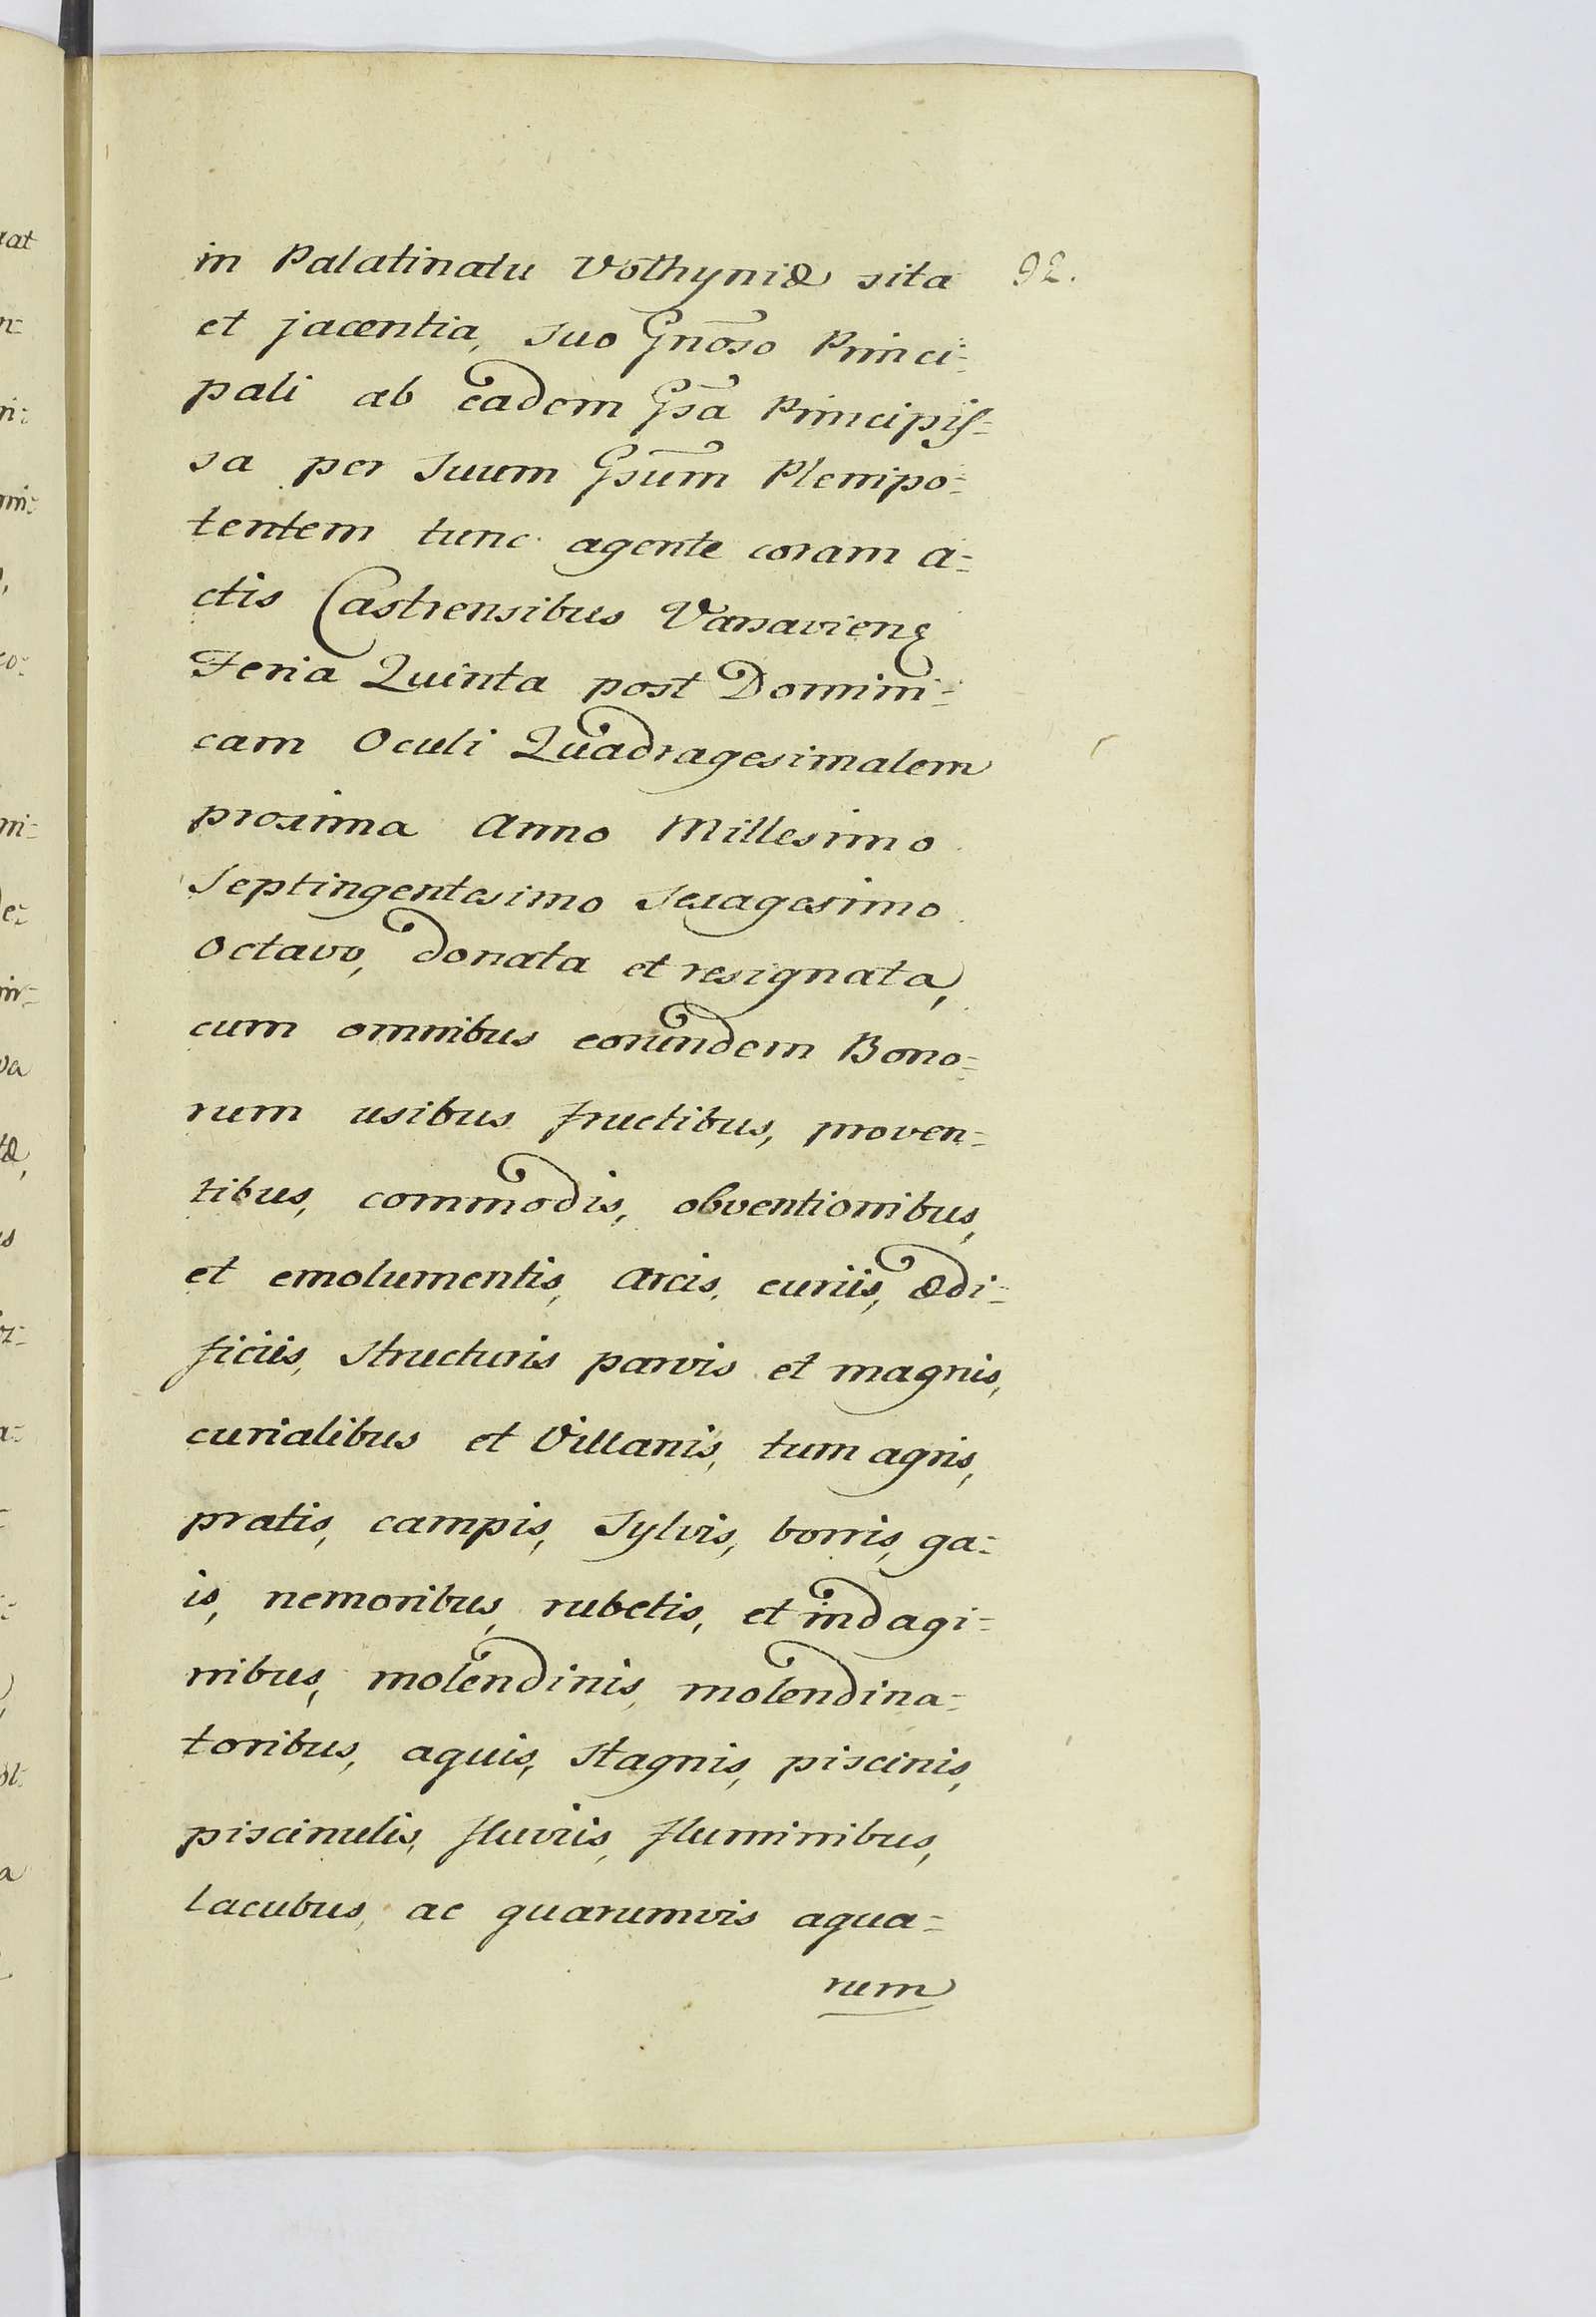 in Palatinatu Volhyniæ sita 92.
et jacentia, Suo Gnōso Princi=
pali ab eadem Gsā Principiſ=
sa per Suum Gsūm Plenipo=
tentem tunc agente coram a=
ctis Castrensibus Varsavieng
Feria Quinta post Domini=
cam Oculi Quadragesimalem
proxima Anno Millesimo
Septingentesimo Sexagesimo
Octavo, donata et resignata,
cum omnibus eorundem Bono=
rum usibus fructibus, proven=
tibus, commodis, obventionibus,
et emolumentis, Arcis, curiis, ædi=
ficiis, Structuris parvis et magnis,
curialibus et Villanis, tum agris,
pratis, campis, Sylvis, borris, ga=
is, nemoribus, rubetis, et indagi=
nibus, molendinis, molendina=
toribus, aquis, Stagnis, piscinis,
piscinulis, fluviis, fluminibus,
lacubus, ac quarumvis aqua=
rum